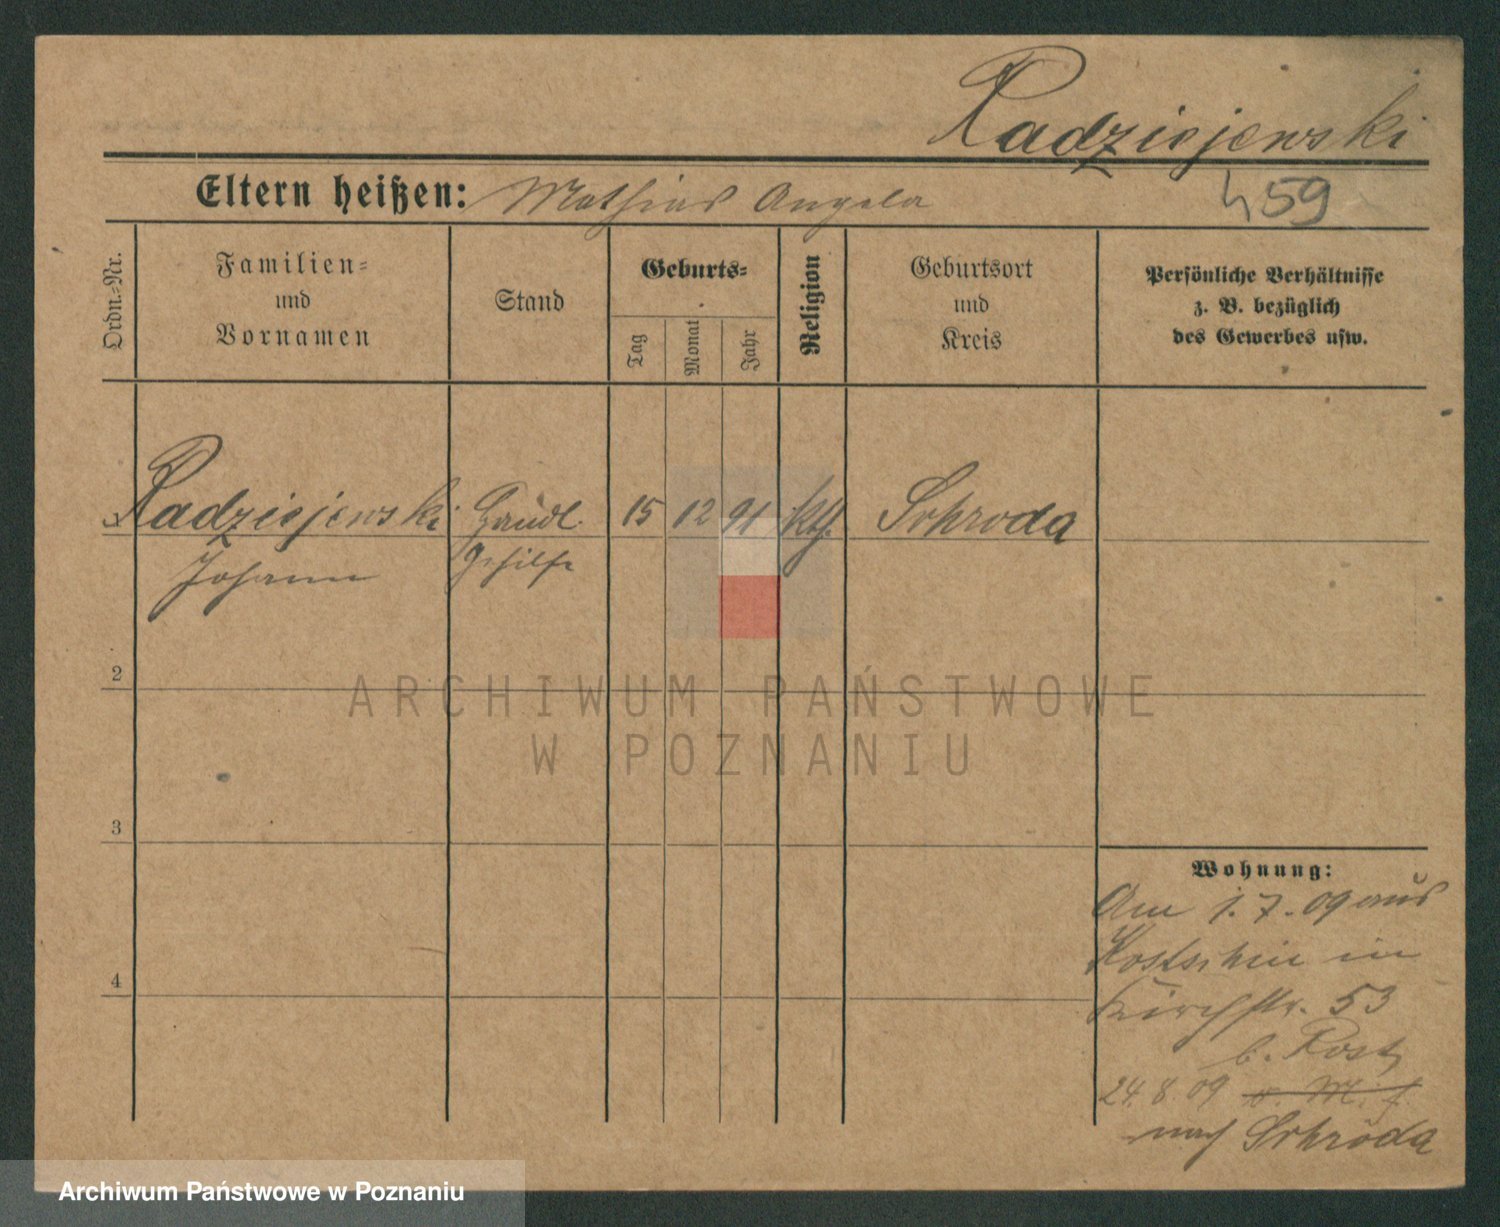 Radziejewski
Eltern heißen: Mathias Angela
459
Ordn.-Nr.
Familien-
und
Vornamen
Stand
Geburts-
Tag
Monat
Jahr
Religion
Geburtsort
und
Kreis
Persönliche Verhältnisse
z. B. bezüglich
des Gewerbes usw.
Radziejewski Handl. 15 12 91 kth. Schroda
Johann Gehilfe
2
ARCHIWUM PAŃSTWOWE
W POZNANIU
3
4
Wohnung:
Am 1.7.09 aus
Kostschin in
Kirchstr. 53
b. Rost
24.8.09
nach Schroda
Archiwum Państwowe w Poznaniu